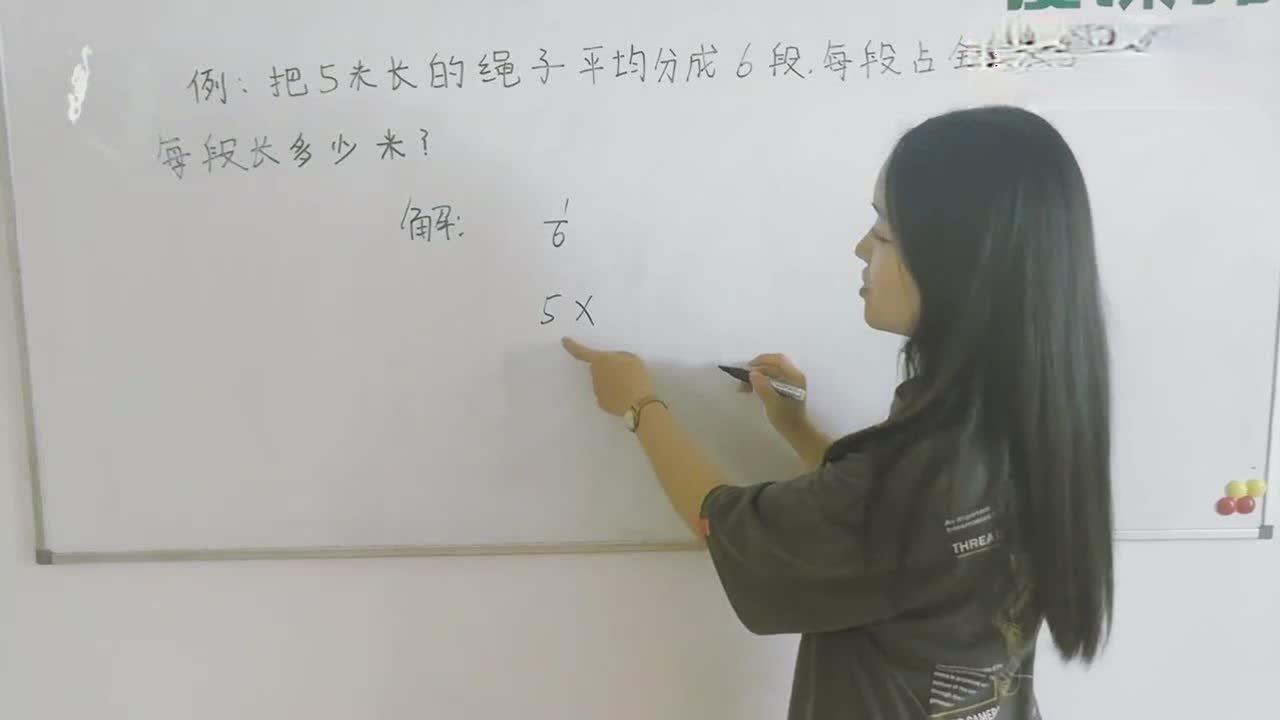 例：把5米长的绳子平均分成6段，每段占全
每段长多少米？
解： 1/6
5×
An important
THREA
CAMERA